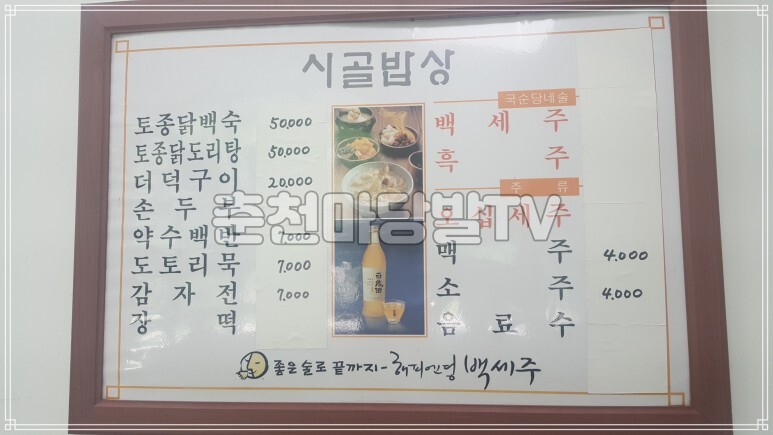 시골밥상
토종닭백숙 50,000
토종닭도리탕 50,000
더덕구이 20,000
손두부
약수백반 7,000
도토리묵 7,000
감자전 7,000
장떡
국순당네술
백세주
흑주
주류
오십세주
맥주 4,000
소주 4,000
음료수
춘천마당발TV
좋은술로 끝까지-해피엔딩 백세주